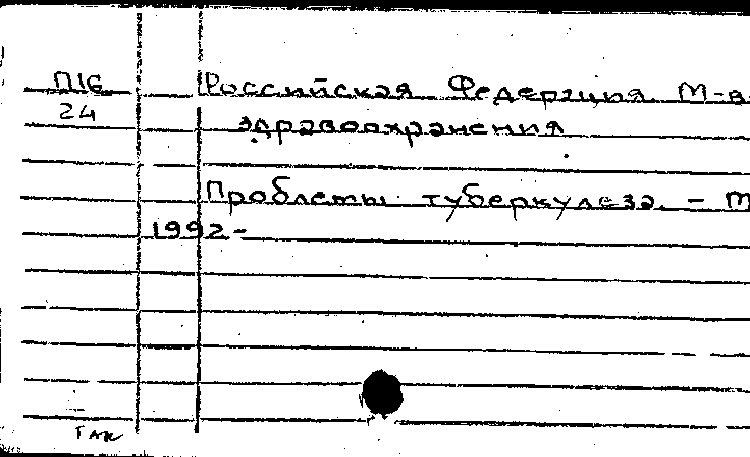 П16 Российская Федерация. М-в
24 здравоохранения
Проблемы туберкулеза. - М
1992-
ГАК